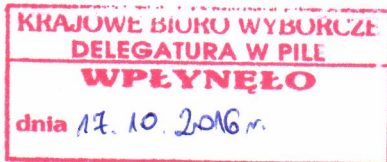 KRAJOWE BIURO WYBORCZE
DELEGATURA W PILE
WPŁYNĘŁO
dnia 17. 10. 2016 r.